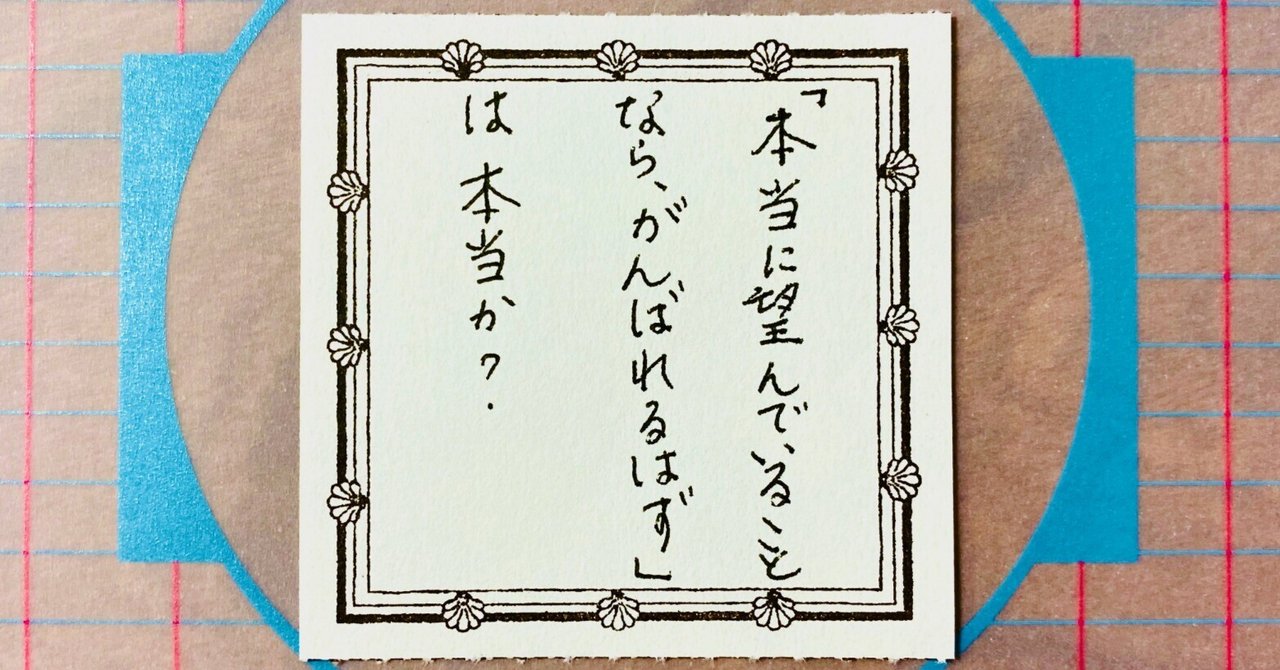 「本当に望んでいること
なら、がんばれるはず」
は本当か?